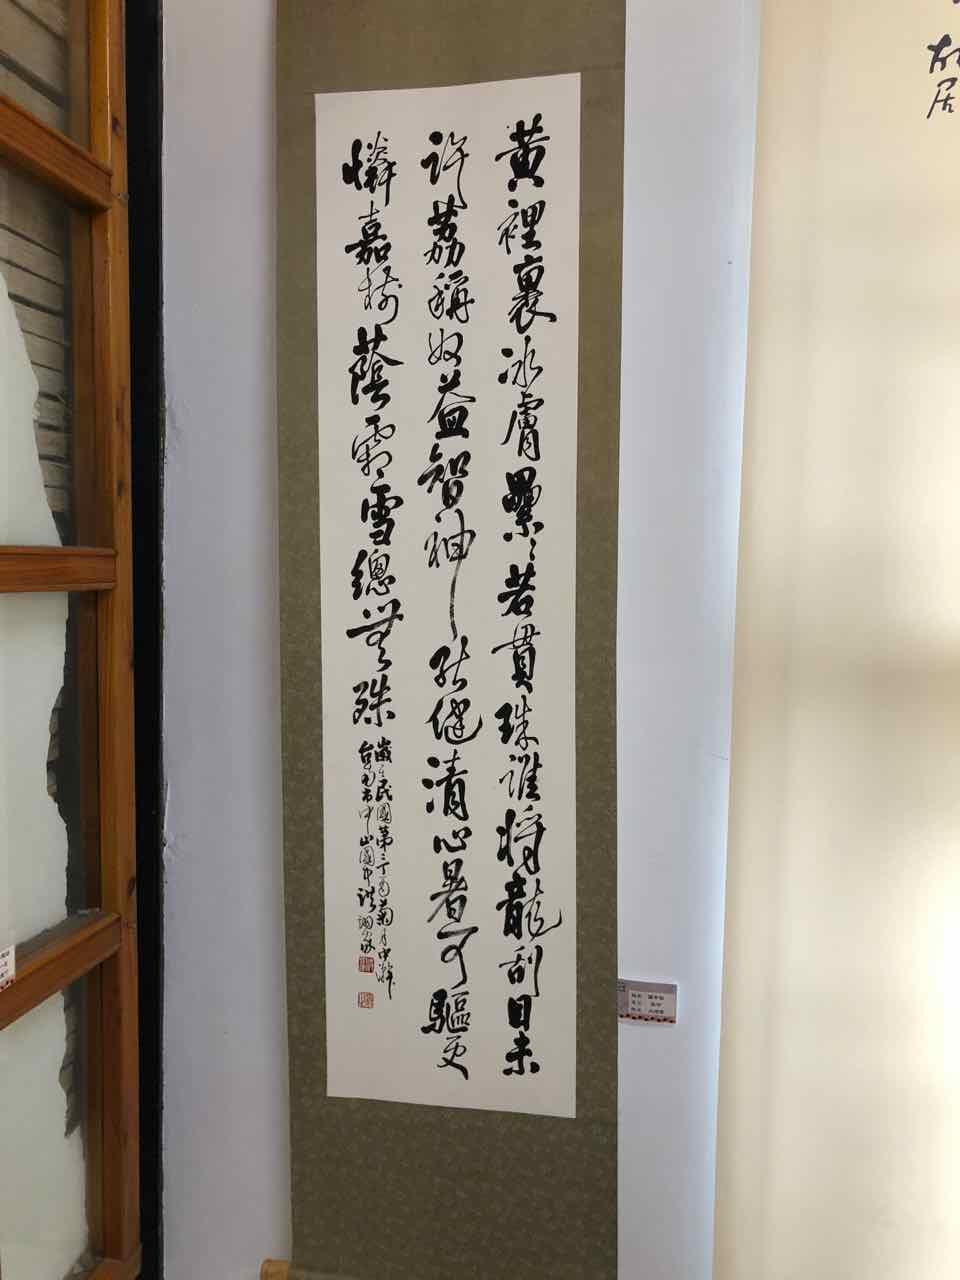 故居
黃裡裹冰膚纍纍若貫珠誰將龍刮目未
許荔稱奴益智神能健清心暑可驅更
憐嘉樹蔭霜雪總無殊
歲民國第丁酉菊月中澣
台南市中山國中洪